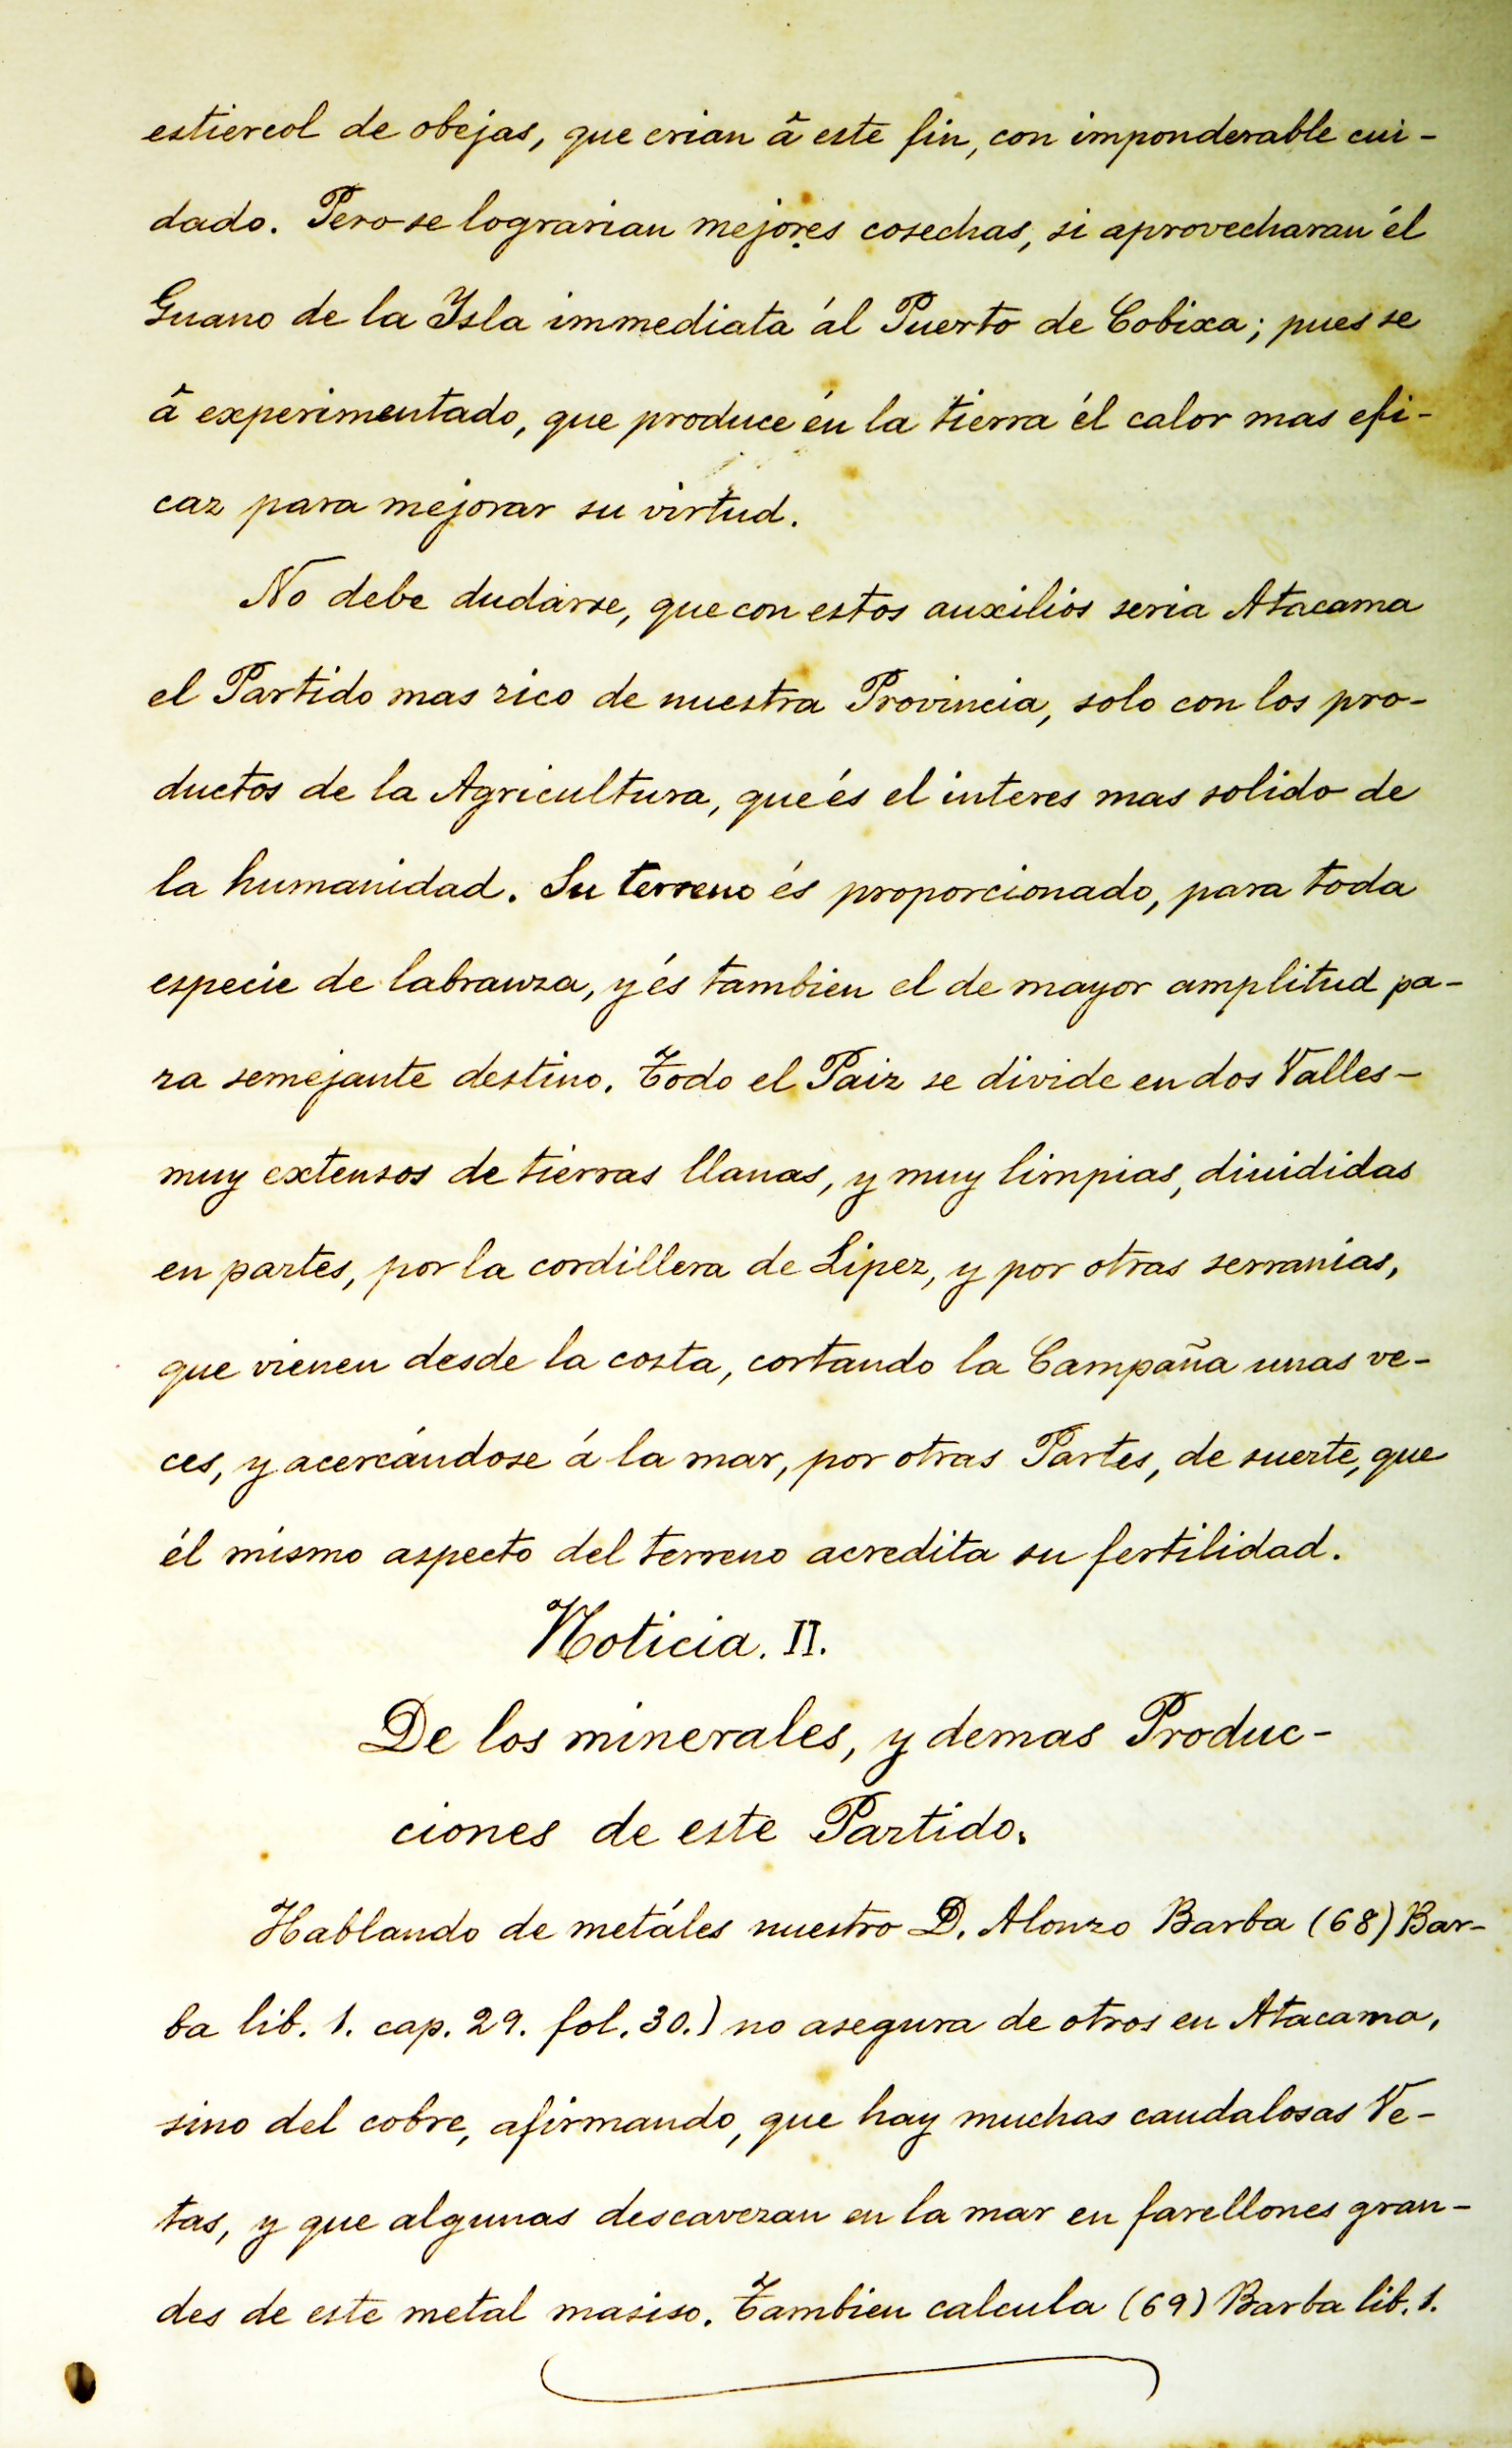 estiercol de obejas, que crian â este fin, con imponderable cui-
dado. Pero se lograrian mejores cosechas, si aprovecharan él
Guano de la Ysla immediata ál Puerto de Cobixa; pues se
â experimentado, que produce én la tierra él calor mas efi-
caz para mejorar su virtud.
No debe dudarse, que con estos auxilios seria Atacama
el Partido mas rico de nuestra Provincia, solo con los pro-
ductos de la Agricultura, que és el interes mas solido de
la humanidad. Su terreno és proporcionado, para toda
especie de labranza, y és tambien el de mayor amplitud pa-
ra semejante destino. Todo el Paiz se divide en dos Valles-
muy extensos de tierras llanas, y muy limpias, diuididas
en partes, por la cordillera de Lipez, y por otras serranias,
que vienen desde la costa, cortando la Campaña unas ve-
ces, y acercándose á la mar, por otras Partes, de suerte, que
él mismo aspecto del terreno acredita su fertilidad.
Noticia. II.
De los minerales, y demas Produc-
ciones de este Partido.
Hablando de metáles nuestro D. Alonzo Barba (68) Bar-
ba lib. 1. cap. 29. fol. 30.) no asegura de otros en Atacama,
sino del cobre, afirmando, que hay muchas caudalosas Ve-
tas, y que algunas descavezan en la mar en farellones gran-
des de este metal masiso. Tambien calcula (69) Barba lib. 1.